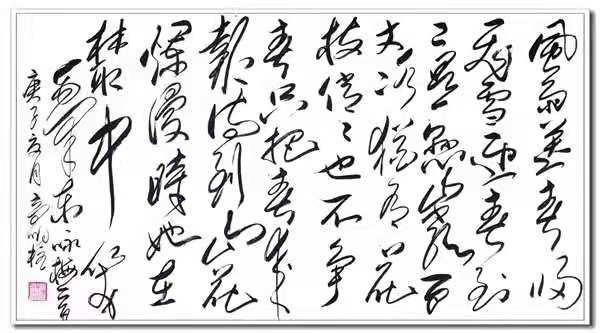 風雨送春归
飛雪迎春到
已是懸崖百
丈冰猶有花
枝俏〻也不争
春只把春来
報待到山花
爛漫時她在
叢中笑
东咏梅
庚子月